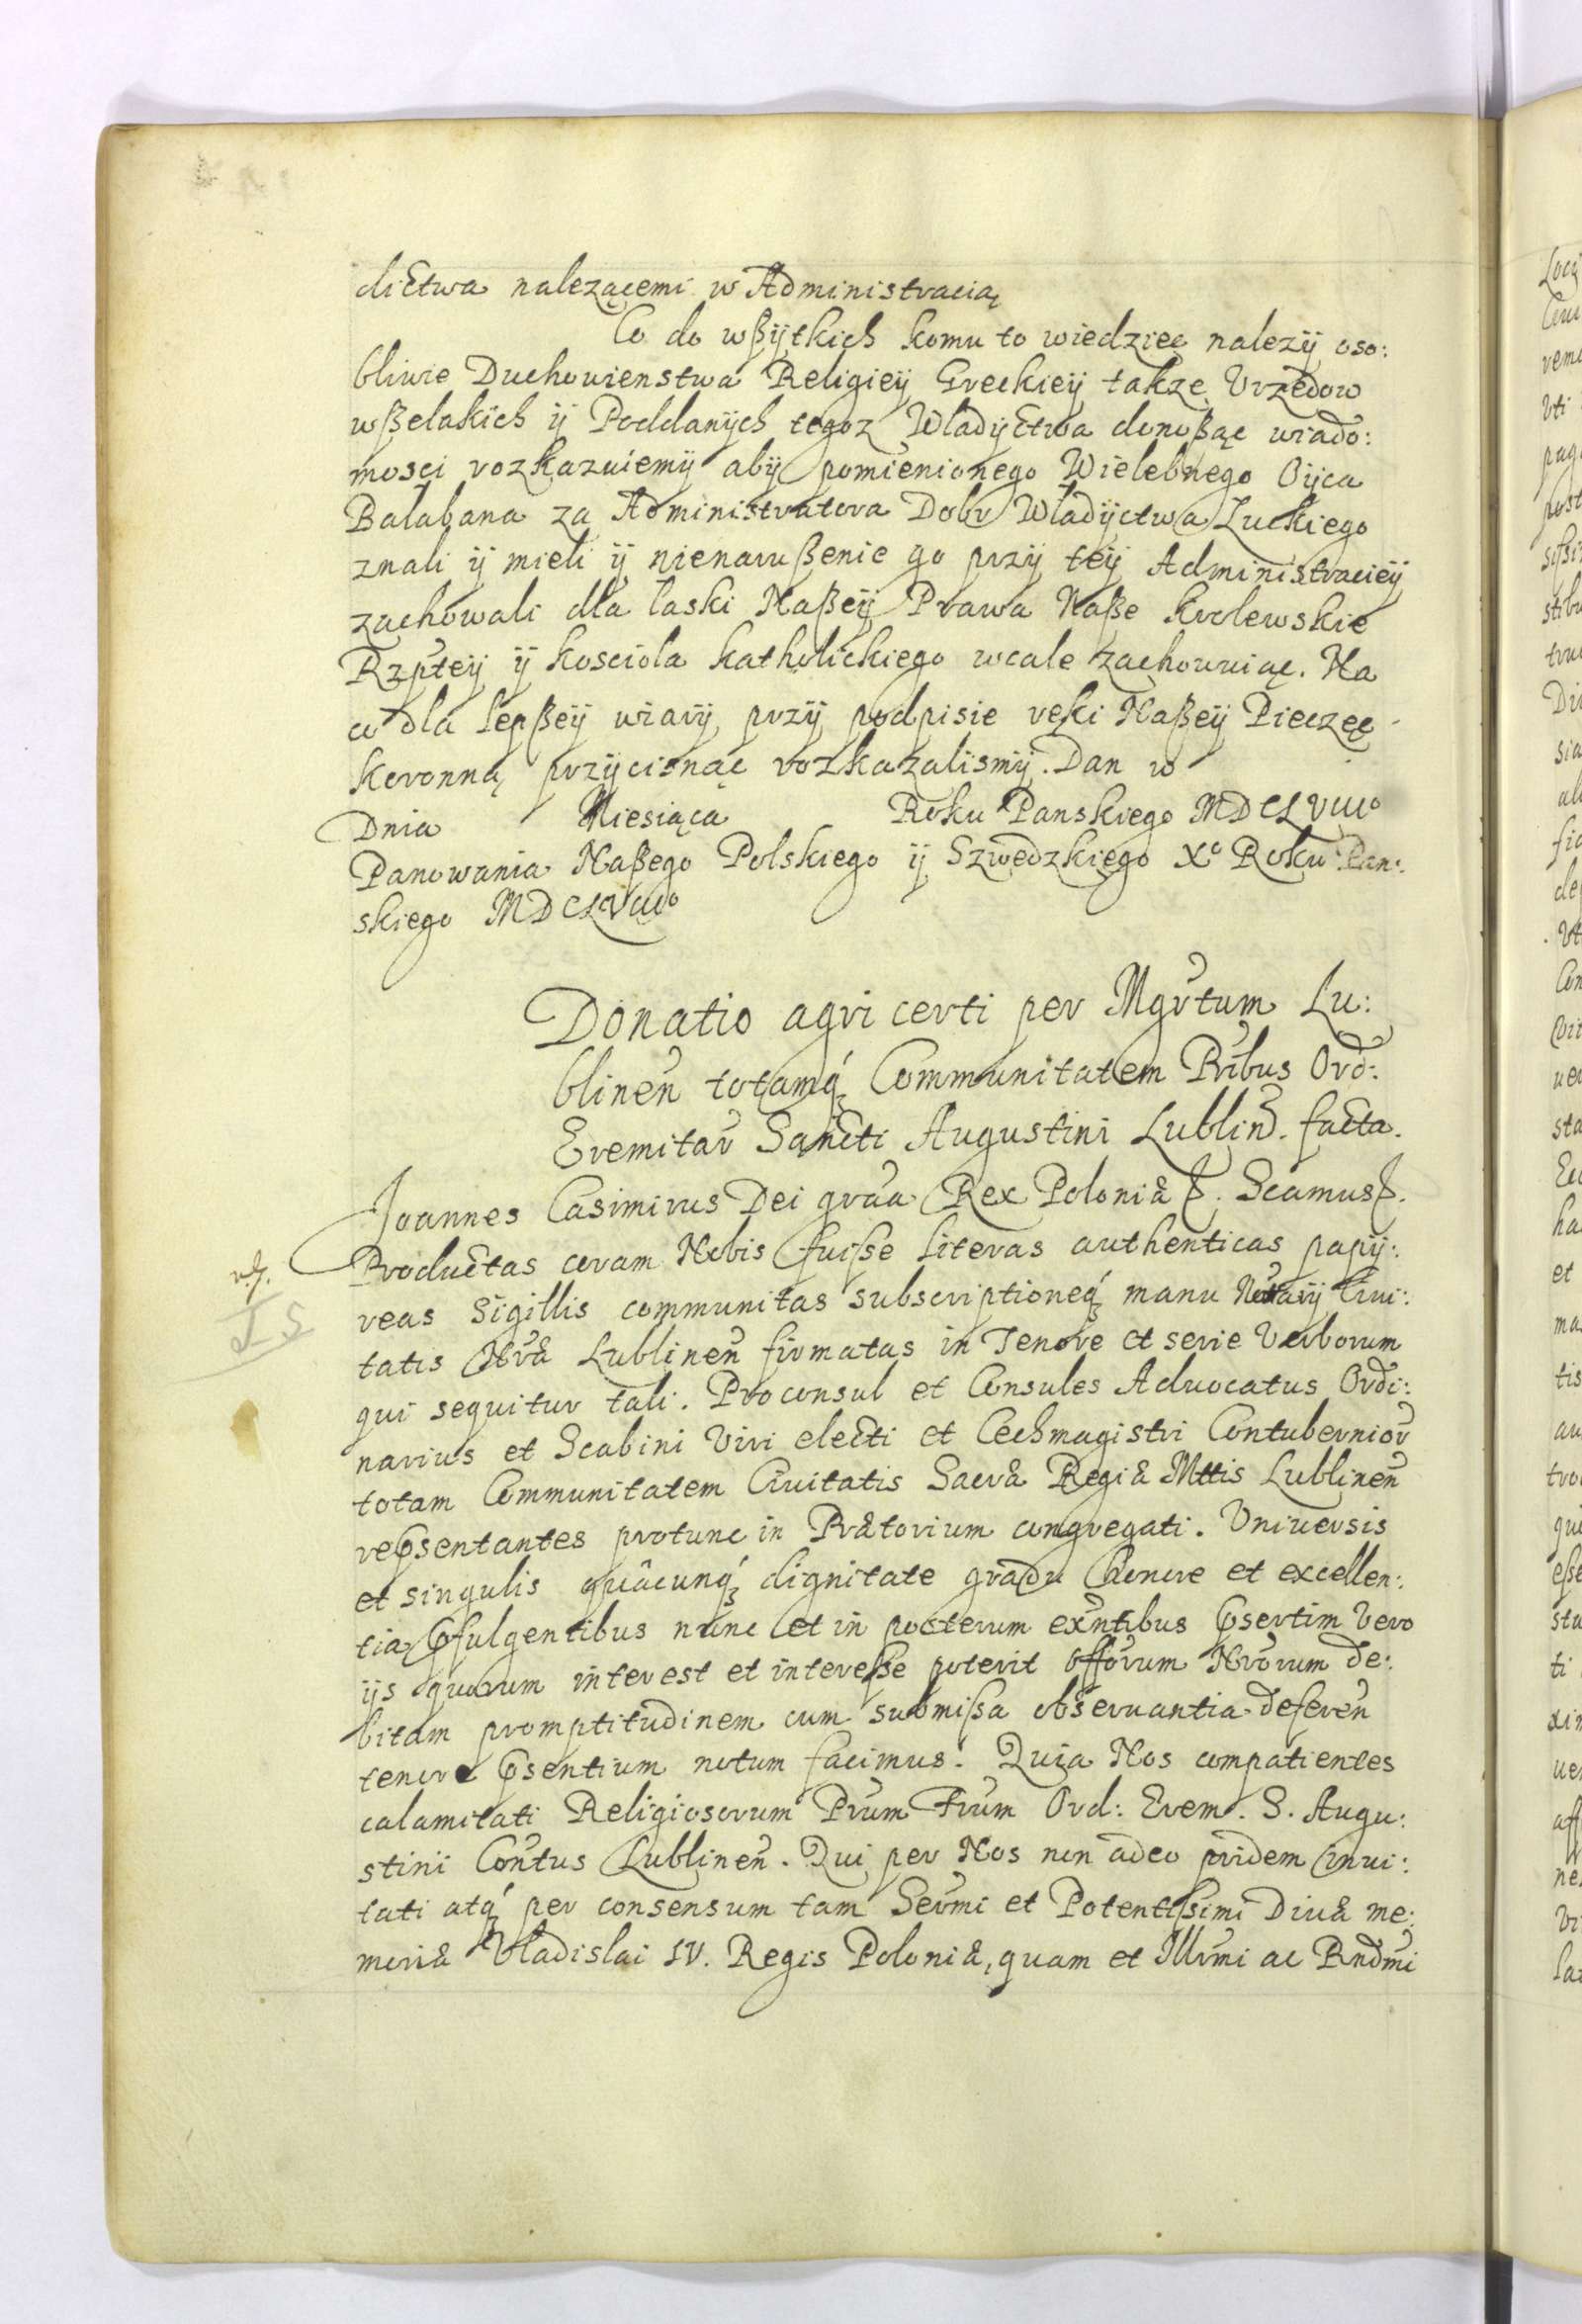 dictwa nalezącemi w Administracią
Co do wßÿtkich komu to wiedziec nalezÿ oso:
bliwie Duchowienstwa Religieÿ Greckieÿ takze Vrzędow
wßelakich ÿ Poddanÿch tegoz Władÿctwa donoßąc wiado:
mosci rozkazuiemÿ abÿ pomienionego Wielebnego Oÿca
Bałabana za Administratora Dobr Władÿctwa Łuckiego
znali ÿ mieli ÿ nienarußenie go przÿ teÿ Administracieÿ
zachowali dla łaski Naßeÿ Prawa Naße krolewskie
Rzpteÿ ÿ kosciola katholickiego wcale zachowuiąc. Na
co dla lepßeÿ wiarÿ przÿ podpisie ręki Naßeÿ Pieczęc
koronną przÿcisnąc rozkazalismÿ. Dan w
Dnia Miesiąca Roku Panskiego MDCLVIIIo
Panowania Naßego Polskiego ÿ Szwedzkiego Xo Roku Pan:
skiego MDCLVIIIo
Donatio agri certi per Mgrtum Lu:
blinen totamq́ Communitatem Pribus Ord:
Eremitar Sancti Augustini Lublin. facta.
Joannes Casimirus Dei graa Rex Poloniæ &. Scamus &.
Productas coram Nobis fuisse literas authenticas papÿ:
v.g.
reas Sigillis communitas subscriptioneq́ manu Notarÿ Ciui:
I S
tatis Nræ Lublinen firmatas in Tenore et serie Verborum
qui sequitur tali. Proconsul et Consules Aduocatus Ordi:
narius et Scabini Viri electi et Cechmagistri Contubernior
totam Communitatem Ciuitatis Sacræ Regiæ Mttis Lublinen
repsentantes protunc in Prætorium congregati. Vniuersis
et singulis quâcunq́ dignitate gradu honore et excellen:
tia pfulgentibus nunc et in posterum exntibus psertim Vero
ijs quorum interest et interesse poterit offorum Nrorum de:
bitam promptitudinem cum submissa obseruantia deferen
tenore psentium notum facimus. Quia Nos compatientes
calamitati Religiosorum Prum Frum Ord: Erem. S. Augu:
stini Contus Lublinen. Qui per Nos non adeo pridem inui:
tati atq́ per consensum tam Sermi et Potentissimi Diuæ me:
moriæ Vladislai IV. Regis Poloniæ, quam et Illrmi ac Rndmi